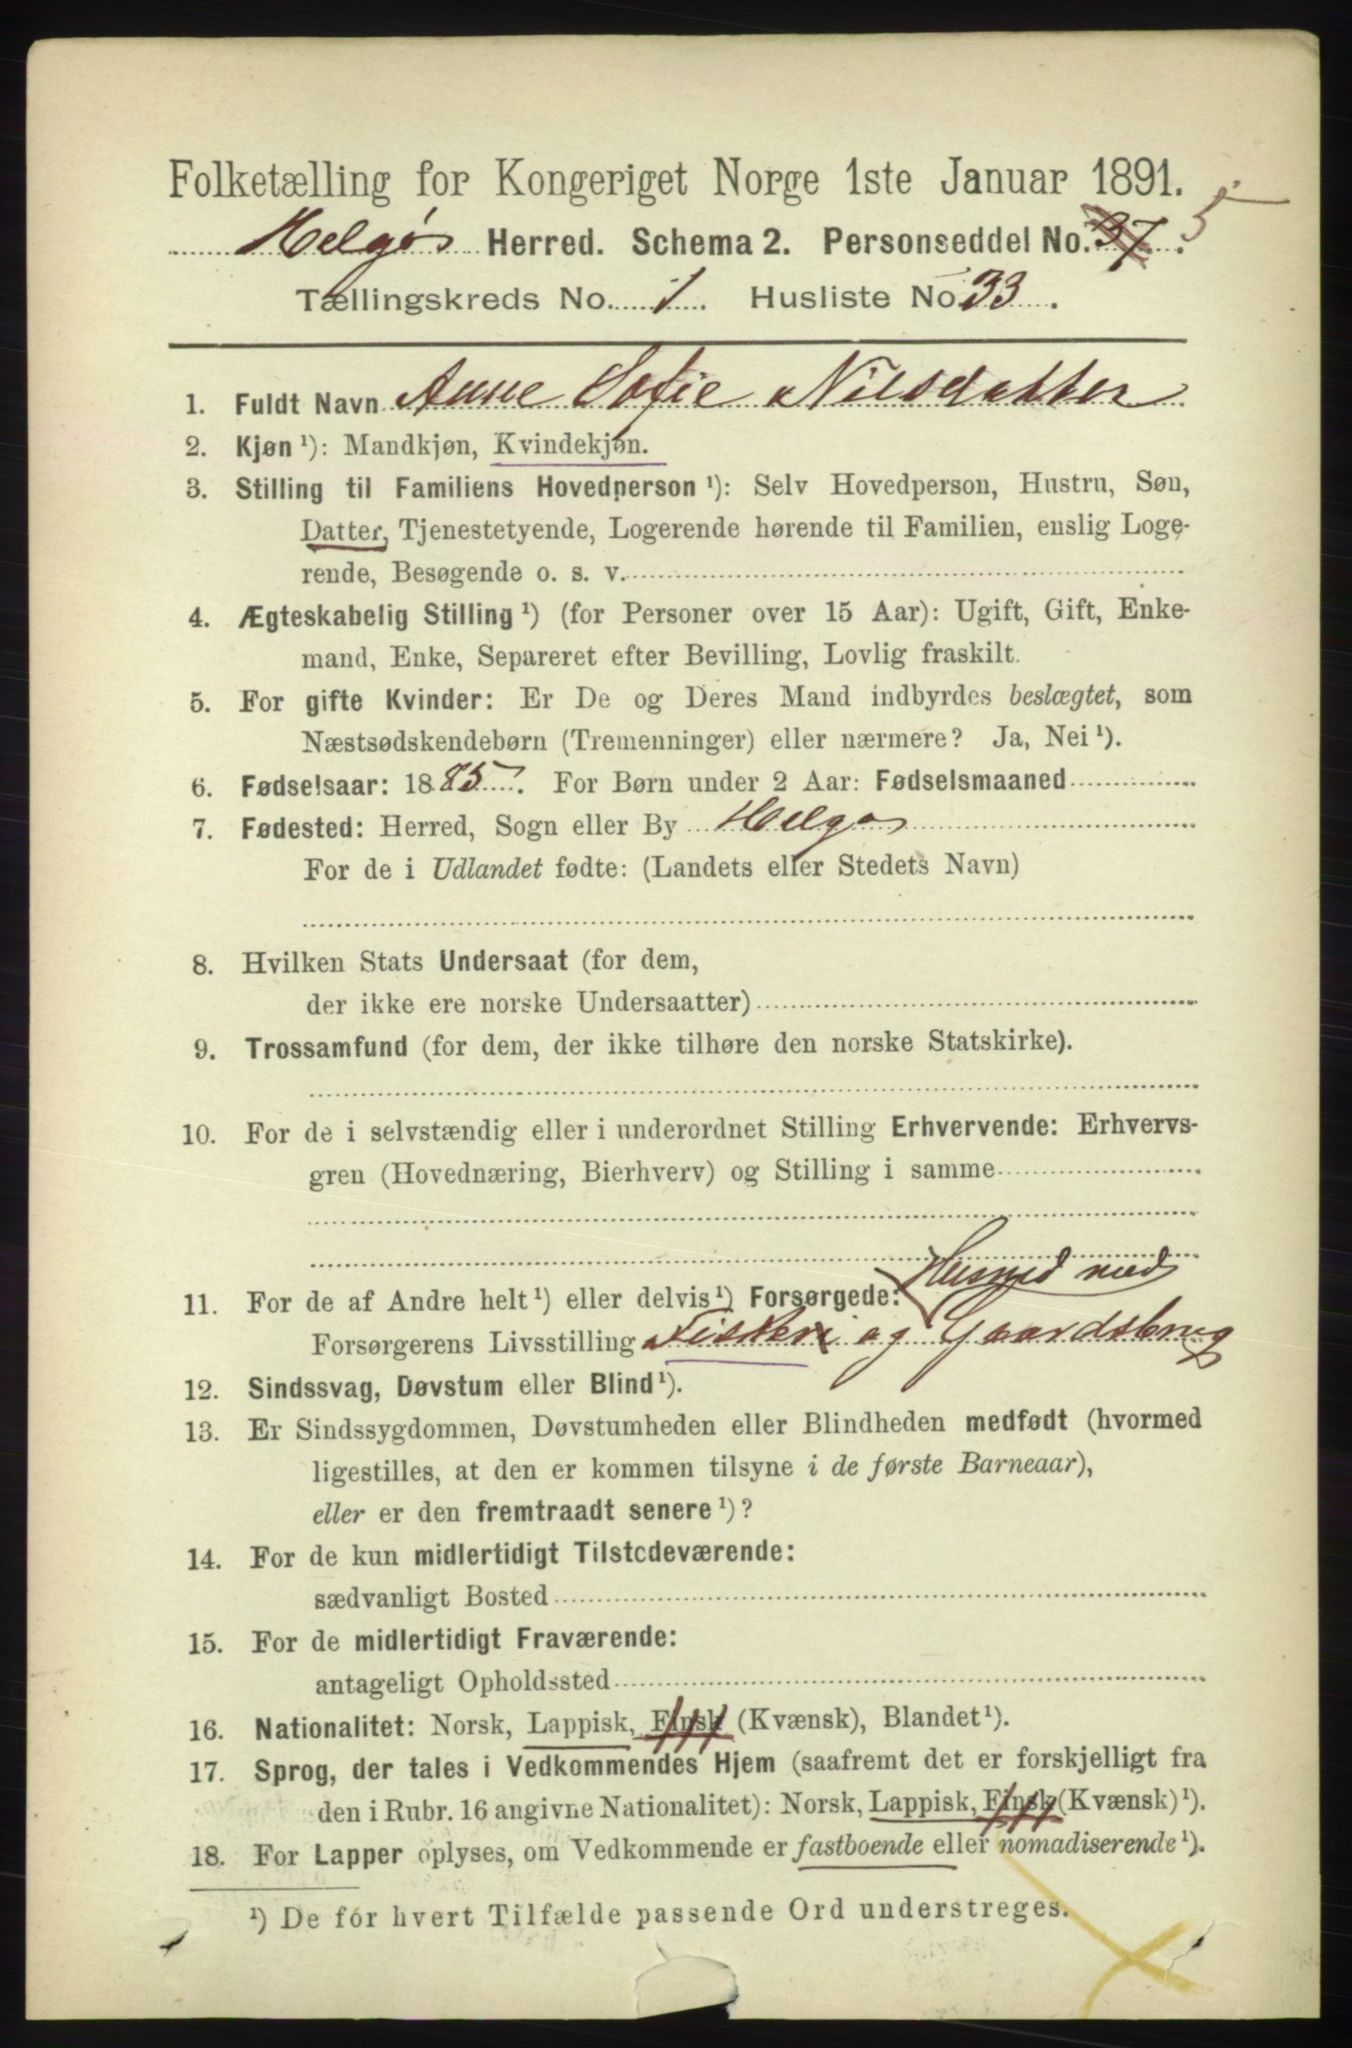 Folketælling for Kongeriget Norge 1ste Januar 1891.
Helgøs Herred. Schema 2. Personseddel No. 37. 5
Tællingskreds No. 1. Husliste No 33.
1. Fuldt Navn Anne Sofie Nilsdatter
2. Kjøn ¹): Mandkjøn, Kvindekjøn.
3. Stilling til Familiens Hovedperson ¹): Selv Hovedperson, Hustru, Søn,
Datter, Tjenestetyende, Logerende hørende til Familien, enslig Loge-
rende, Besøgende o. s. v.
4. Ægteskabelig Stilling ¹) (for Personer over 15 Aar): Ugift, Gift, Enke-
mand, Enke, Separeret efter Bevilling, Lovlig fraskilt.
5. For gifte Kvinder: Er De og Deres Mand indbyrdes beslægtet, som
Næstsødskendebørn (Tremenninger) eller nærmere? Ja, Nei ¹).
6. Fødselsaar: 1885. For Børn under 2 Aar: Fødselsmaaned
7. Fødested: Herred, Sogn eller By Helgø
For de i Udlandet fødte: (Landets eller Stedets Navn)
8. Hvilken Stats Undersaat (for dem,
der ikke ere norske Undersaatter)
9. Trossamfund (for dem, der ikke tilhøre den norske Statskirke).
10. For de i selvstændig eller i underordnet Stilling Erhvervende: Erhvervs-
gren (Hovednæring, Bierhverv) og Stilling i samme
Husmd med
11. For de af Andre helt ¹) eller delvis ¹) Forsørgede:
Forsørgerens Livsstilling Fiskeri og Gaardsbrug
12. Sindssvag, Døvstum eller Blind ¹).
13. Er Sindssygdommen, Døvstumheden eller Blindheden medfødt (hvormed
ligestilles, at den er kommen tilsyne i de første Barneaar),
eller er den fremtraadt senere ¹)?
14. For de kun midlertidigt Tilstedeværende:
sædvanligt Bosted
15. For de midlertidigt Fraværende:
antageligt Opholdssted
16. Nationalitet: Norsk, Lappisk, Finsk (Kvænsk), Blandet ¹).
17. Sprog, der tales i Vedkommendes Hjem (saafremt det er forskjelligt fra
den i Rubr. 16 angivne Nationalitet): Norsk, Lappisk, Finsk (Kvænsk) ¹).
18. For Lapper oplyses, om Vedkommende er fastboende eller nomadiserende ¹).
¹) De for hvert Tilfælde passende Ord understreges.